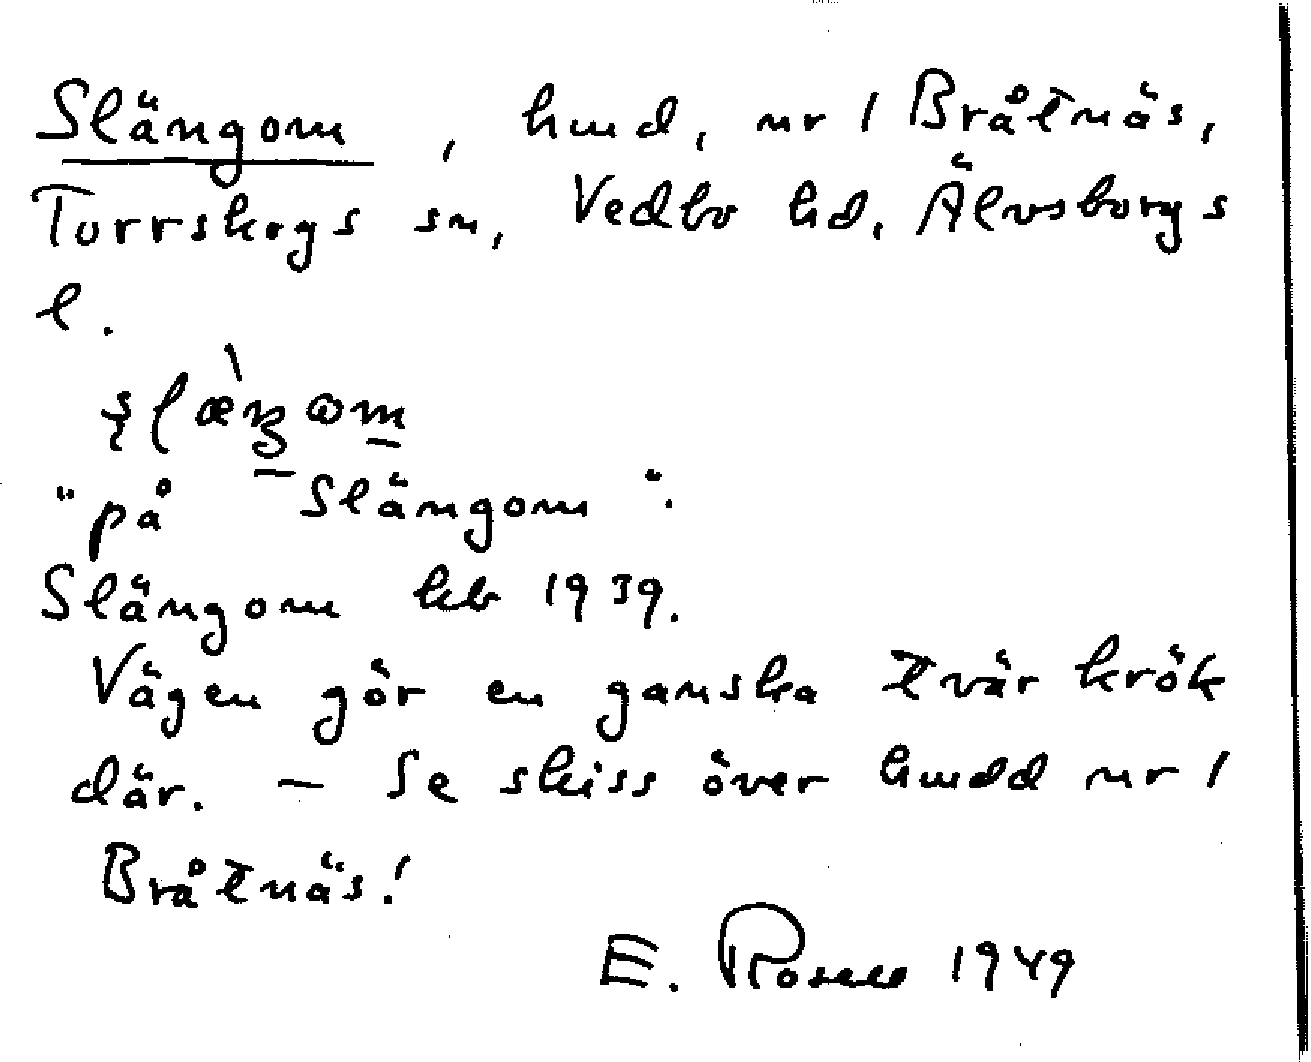 Slängom, hmd, nr 1 Bråtnäs,
Torrskogs sn, Vedbo hd, Älvsborgs
l.
"på Slängom".
Slängom kb 1939.
Vägen gör en ganska tvär krök
där. – Se skiss över hmdd nr 1
Bråtnäs!
E. Rosell 1949